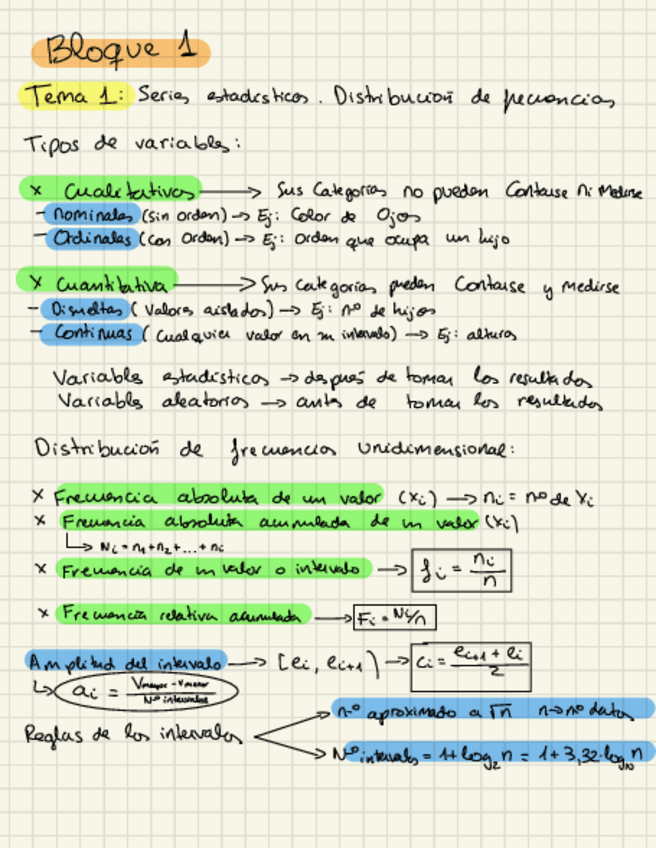 Bloque 1
Tema 1: Series estadísticas. Distribución de frecuencias
Tipos de variables:
x Cualitativas → Sus Categorías no pueden Contarse ni Medirse
- Nominales (sin orden) → Ej: Color de Ojos
- Ordinales (con Orden) → Ej: Orden que ocupa un hijo
x Cuantitativa → Sus categorías pueden Contarse y Medirse
- Discretas (Valores aislados) → Ej: nº de hijos
- Continuas (Cualquier valor en un intervalo) → Ej: altura
Variables estadísticas → después de tomar los resultados
Variables aleatorias → antes de tomar los resultados
Distribución de frecuencias Unidimensional:
x Frecuencia absoluta de un valor (xi) → ni = nº de Xi
x Frecuencia absoluta acumulada de un valor (xi)
↳ Ni = n1 + n2 + ... + ni
x Frecuencia de un valor o intervalo → fi = ni/n
x Frecuencia relativa acumulada → Fi = Ni/n
Amplitud del intervalo → [ei, ei+1) → ci = (ei+1 + ei)/2
↳ ai = (Vmayor - Vmenor)/Nº intervalos
Reglas de los intervalos
nº aproximado a √n n → nº datos
Nº intervalos = 1 + log₂ n = 1 + 3,32·log₁₀ n